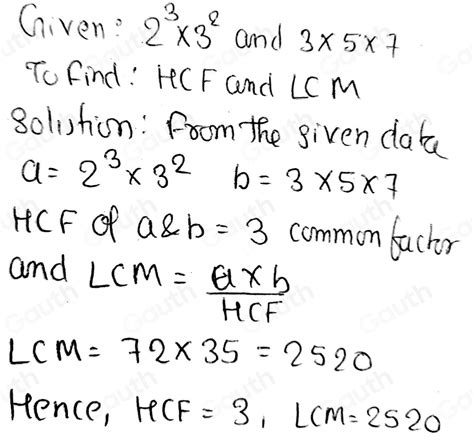 Given: 2³×3² and 3×5×7
To find: HCF and LCM
Solution: From the given data
a = 2³×3² b = 3×5×7
HCF of a&b = 3 common factor
and LCM = a×b/HCF
LCM = 72×35 = 2520
Hence, HCF = 3, LCM = 2520